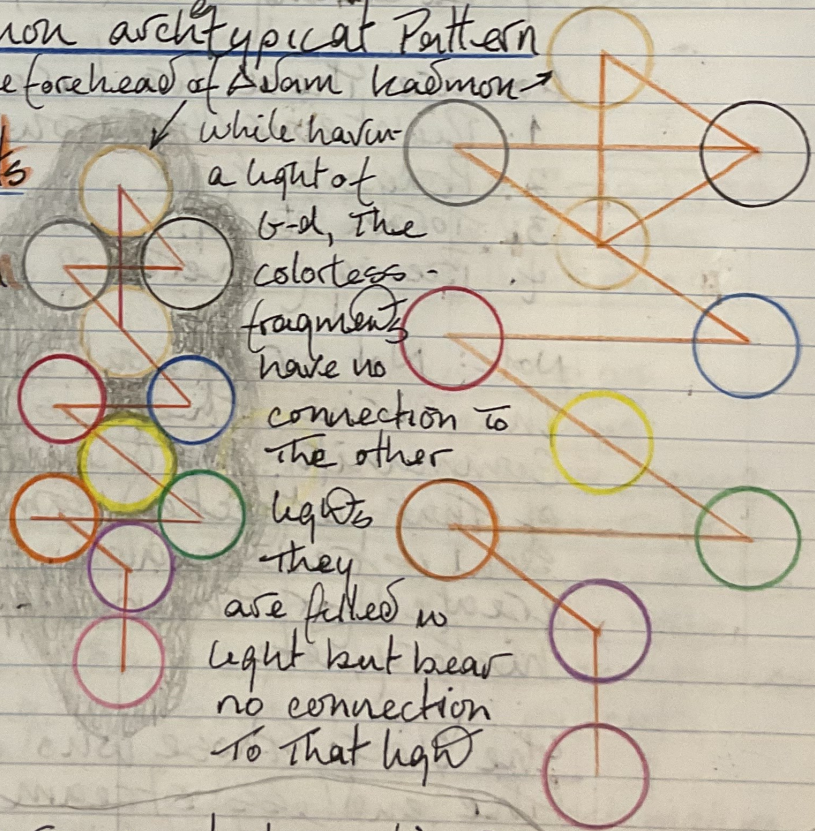 non archetypical Pattern
e forehead of Adam Kadmon
while havin-
a light of
G-d, The
colorless -
fragments
have no
connection to
The other
lights
They
are filled w
light but bear
no connection
To That light